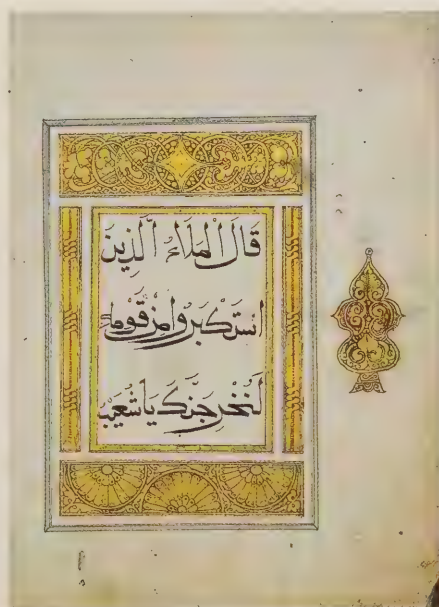 قَالَ الْمَلَاءُ الَّذِينَ
اسْتَكْبَرُوا مِنْ قَوْمِهِ
لَنُخْرِجَنَّكَ يَا شُعَيْبُ